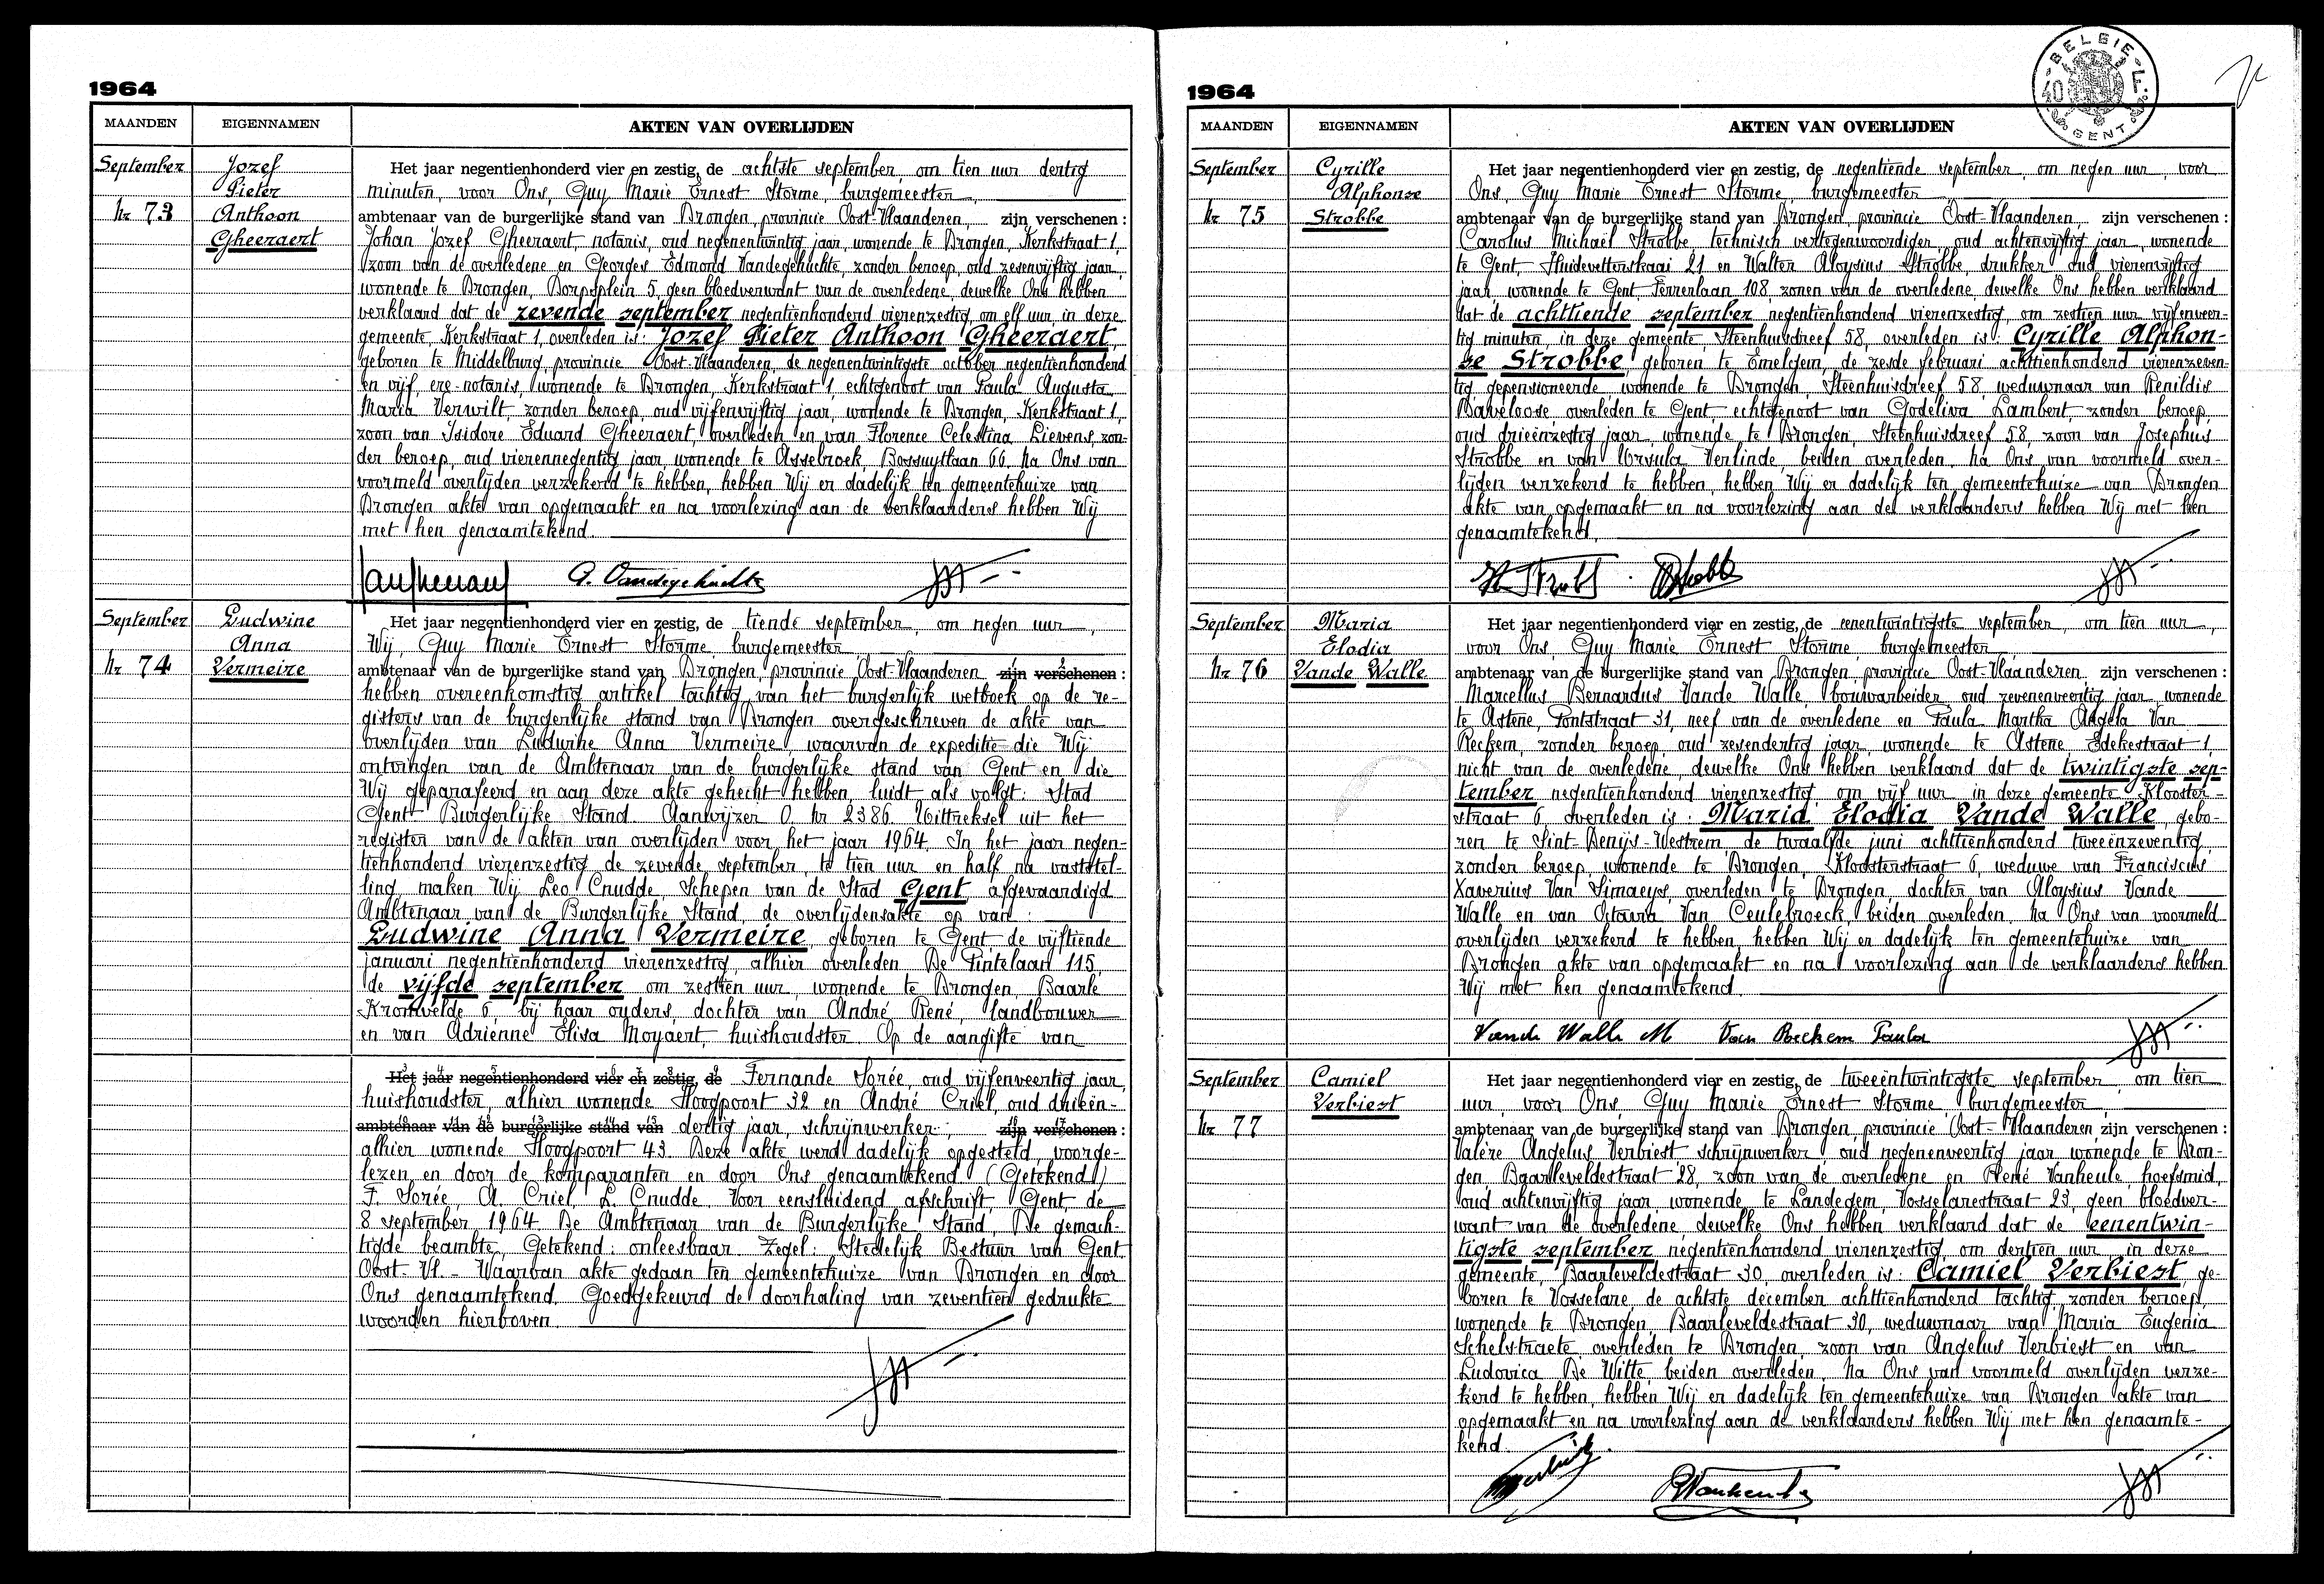 1964
MAANDEN EIGENNAMEN AKTEN VAN OVERLIJDEN
September
Nr 73
Jozef
Pieter
Anthoon
Gheeraert
Het jaar negentienhonderd vier en zestig, de achtste september, om tien uur dertig
minuten, voor Ons, Guy Marie Ernest Storme, burgemeester
ambtenaar van de burgerlijke stand van Drongen, provincie Oost-Vlaanderen, zijn verschenen :
Johan Jozef Gheeraert, notaris, oud negenentwintig jaar, wonende te Drongen, Kerkstraat 1,
zoon van de overledene en Georges Edmond Vandegehuchte, zonder beroep, oud zesenvijftig jaar,
wonende te Drongen, Dorpsplein 5, geen bloedverwant van de overledene, dewelke Ons hebben
verklaard dat de zevende september negentienhonderd vierenzestig, om elf uur, in deze
gemeente, Kerkstraat 1, overleden is: Jozef Pieter Anthoon Gheeraert,
geboren te Middelburg, provincie Oost-Vlaanderen, de negenentwintigste october negentienhonderd
en vijf, ere-notaris, wonende te Drongen, Kerkstraat 1, echtgenoot van Paula Augusta
Maria Verwilt, zonder beroep, oud vijfenvijftig jaar, wonende te Drongen, Kerkstraat 1,
zoon van Isidore Eduard Gheeraert, overleden en van Florence Celestina Lievens, zon-
der beroep, oud vierennegentig jaar, wonende te Assebroek, Bossuytlaan 66. Na Ons van
voormeld overlijden verzekerd te hebben, hebben Wij er dadelijk ten gemeentehuize van
Drongen akte van opgemaakt en na voorlezing aan de verklaarders hebben Wij
met hen genaamtekend.
G. Vandegehuchte
September
Nr 74
Ludwine
Anna
Vermeire
Het jaar negentienhonderd vier en zestig, de tiende september, om negen uur,
Wij, Guy Marie Ernest Storme, burgemeester
ambtenaar van de burgerlijke stand van Drongen, provincie Oost-Vlaanderen zijn verschenen :
hebben overeenkomstig artikel tachtig van het burgerlijk wetboek op de re-
gisters van de burgerlijke stand van Drongen overgeschreven de akte van
overlijden van Ludwine Anna Vermeire, waarvan de expeditie die Wij
ontvingen van de Ambtenaar van de burgerlijke stand van Gent en die
Wij geparafeerd en aan deze akte gehecht hebben, luidt als volgt: Stad
Gent - Burgerlijke Stand. Aanwijzer O nr 2386. Uittreksel uit het
register van de akten van overlijden voor het jaar 1964. In het jaar negen-
tienhonderd vierenzestig de zevende september, te tien uur en half na vaststel-
ling, maken Wij Leo Cnudde, Schepen van de Stad Gent, afgevaardigd
Ambtenaar van de Burgerlijke Stand, de overlijdensakte op van :
Ludwine Anna Vermeire, geboren te Gent, de vijftiende
januari negentienhonderd vierenzestig, alhier overleden De Pintelaan 115,
de vijfde september om zestien uur, wonende te Drongen, Baarle
Kromvelde 6, bij haar ouders, dochter van André René, landbouwer
en van Adrienne Elisa Moyaert, huishoudster. Op de aangifte van
Het jaar negentienhonderd vier en zestig, de Fernande Sorée, oud vijfenveertig jaar,
huishoudster, alhier wonende Hoogpoort 32 en André Criel, oud drieën-
ambtenaar van de burgerlijke stand van dertig jaar, schrijnwerker, zijn verschenen :
alhier wonende Hoogpoort 43. Deze akte werd dadelijk opgesteld, voorge-
lezen en door de komparanten en door Ons genaamtekend. (Getekend)
F. Sorée, A. Criel, L. Cnudde. Voor eensluidend afschrift, Gent, de
8 september 1964. De Ambtenaar van de Burgerlijke Stand, De gemach-
tigde beambte, Getekend: onleesbaar. Zegel: Stedelijk Bestuur van Gent
Oost-Vl. - Waarvan akte gedaan ten gemeentehuize van Drongen en door
Ons genaamtekend. Goedgekeurd de doorhaling van zeventien gedrukte
woorden hierboven.
1964
BELGIE
GENT
MAANDEN EIGENNAMEN AKTEN VAN OVERLIJDEN
September
Nr 75
Cyrille
Alphonse
Strobbe
Het jaar negentienhonderd vier en zestig, de negentiende september, om negen uur, voor
Ons, Guy Marie Ernest Storme, burgemeester
ambtenaar van de burgerlijke stand van Drongen, provincie Oost-Vlaanderen, zijn verschenen :
Carolus Michaël Strobbe, technisch vertegenwoordiger, oud achtenvijftig jaar, wonende
te Gent, Huidevetterskaai 21 en Walter Aloysius Strobbe, drukker, oud vierenvijftig
jaar, wonende te Gent, Ferrerlaan 108, zonen van de overledene, dewelke Ons hebben verklaard
dat de achttiende september negentienhonderd vierenzestig, om zestien uur vijfenveer-
tig minuten, in deze gemeente, Steenhuisdreef 58, overleden is: Cyrille Alphon-
se Strobbe, geboren te Emelgem, de zesde februari achttienhonderd vierenzeven-
tig, gepensioneerde, wonende te Drongen, Steenhuisdreef 58, weduwnaar van Renildis
Baveloose, overleden te Gent, echtgenoot van Godeliva Lambert, zonder beroep,
oud drieënzestig jaar, wonende te Drongen, Steenhuisdreef 58, zoon van Josephus
Strobbe en van Ursula Verlinde, beiden overleden. Na Ons van voormeld over-
lijden verzekerd te hebben, hebben Wij er dadelijk ten gemeentehuize van Drongen
akte van opgemaakt en na voorlezing aan de verklaarders hebben Wij met hen
genaamtekend.
September
Nr 76
Maria
Elodia
Vande Walle
Het jaar negentienhonderd vier en zestig, de eenentwintigste september, om tien uur,
voor Ons, Guy Marie Ernest Storme, burgemeester
ambtenaar van de burgerlijke stand van Drongen, provincie Oost-Vlaanderen, zijn verschenen :
Marcellus Bernardus Vande Walle, bouwarbeider, oud zevenenveertig jaar, wonende
te Astene, Pontstraat 31, neef van de overledene en Paula Martha Angela Van
Reckem, zonder beroep, oud zevendertig jaar, wonende te Astene, Edekestraat 1,
nicht van de overledene, dewelke Ons hebben verklaard dat de twintigste sep-
tember negentienhonderd vierenzestig, om vijf uur, in deze gemeente, Klooster-
straat 6, overleden is: Maria Elodia Vande Walle, gebo-
ren te Sint-Denijs-Westrem, de twaalfde juni achttienhonderd tweeënzeventig,
zonder beroep, wonende te Drongen, Kloosterstraat 6, weduwe van Franciscus
Xaverius Van Simaeys, overleden te Drongen, dochter van Aloysius Vande
Walle en van Octavia Van Ceulebroeck, beiden overleden. Na Ons van voormeld
overlijden verzekerd te hebben, hebben Wij er dadelijk ten gemeentehuize van
Drongen akte van opgemaakt en na voorlezing aan de verklaarders hebben
Wij met hen genaamtekend.
Vande Walle M Van Reckem Paula
September
Nr 77
Camiel
Verbiest
Het jaar negentienhonderd vier en zestig, de tweeëntwintigste september, om tien
uur, voor Ons, Guy Marie Ernest Storme, burgemeester,
ambtenaar van de burgerlijke stand van Drongen, provincie Oost-Vlaanderen, zijn verschenen :
Valère Angelus Verbiest, schrijnwerker, oud negenenveertig jaar wonende te Dron-
gen, Baarleveldestraat 28, zoon van de overledene en René Vanheule, hoefsmid,
oud achtenvijftig jaar, wonende te Landegem, Vosselarestraat 23, geen bloedver-
want van de overledene, dewelke Ons hebben verklaard dat de eenentwin-
tigste september negentienhonderd vierenzestig, om dertien uur, in deze
gemeente, Baarleveldestraat 30, overleden is: Camiel Verbiest, ge-
boren te Vosselare, de achtste december achttienhonderd tachtig, zonder beroep,
wonende te Drongen, Baarleveldestraat 30, weduwnaar van Maria Eugenia
Schelstraete, overleden te Drongen, zoon van Angelus Verbiest en van
Ludovica De Witte, beiden overleden. Na Ons van voormeld overlijden verze-
kerd te hebben, hebben Wij er dadelijk ten gemeentehuize van Drongen akte van
opgemaakt en na voorlezing aan de verklaarders hebben Wij met hen genaamte-
kend.